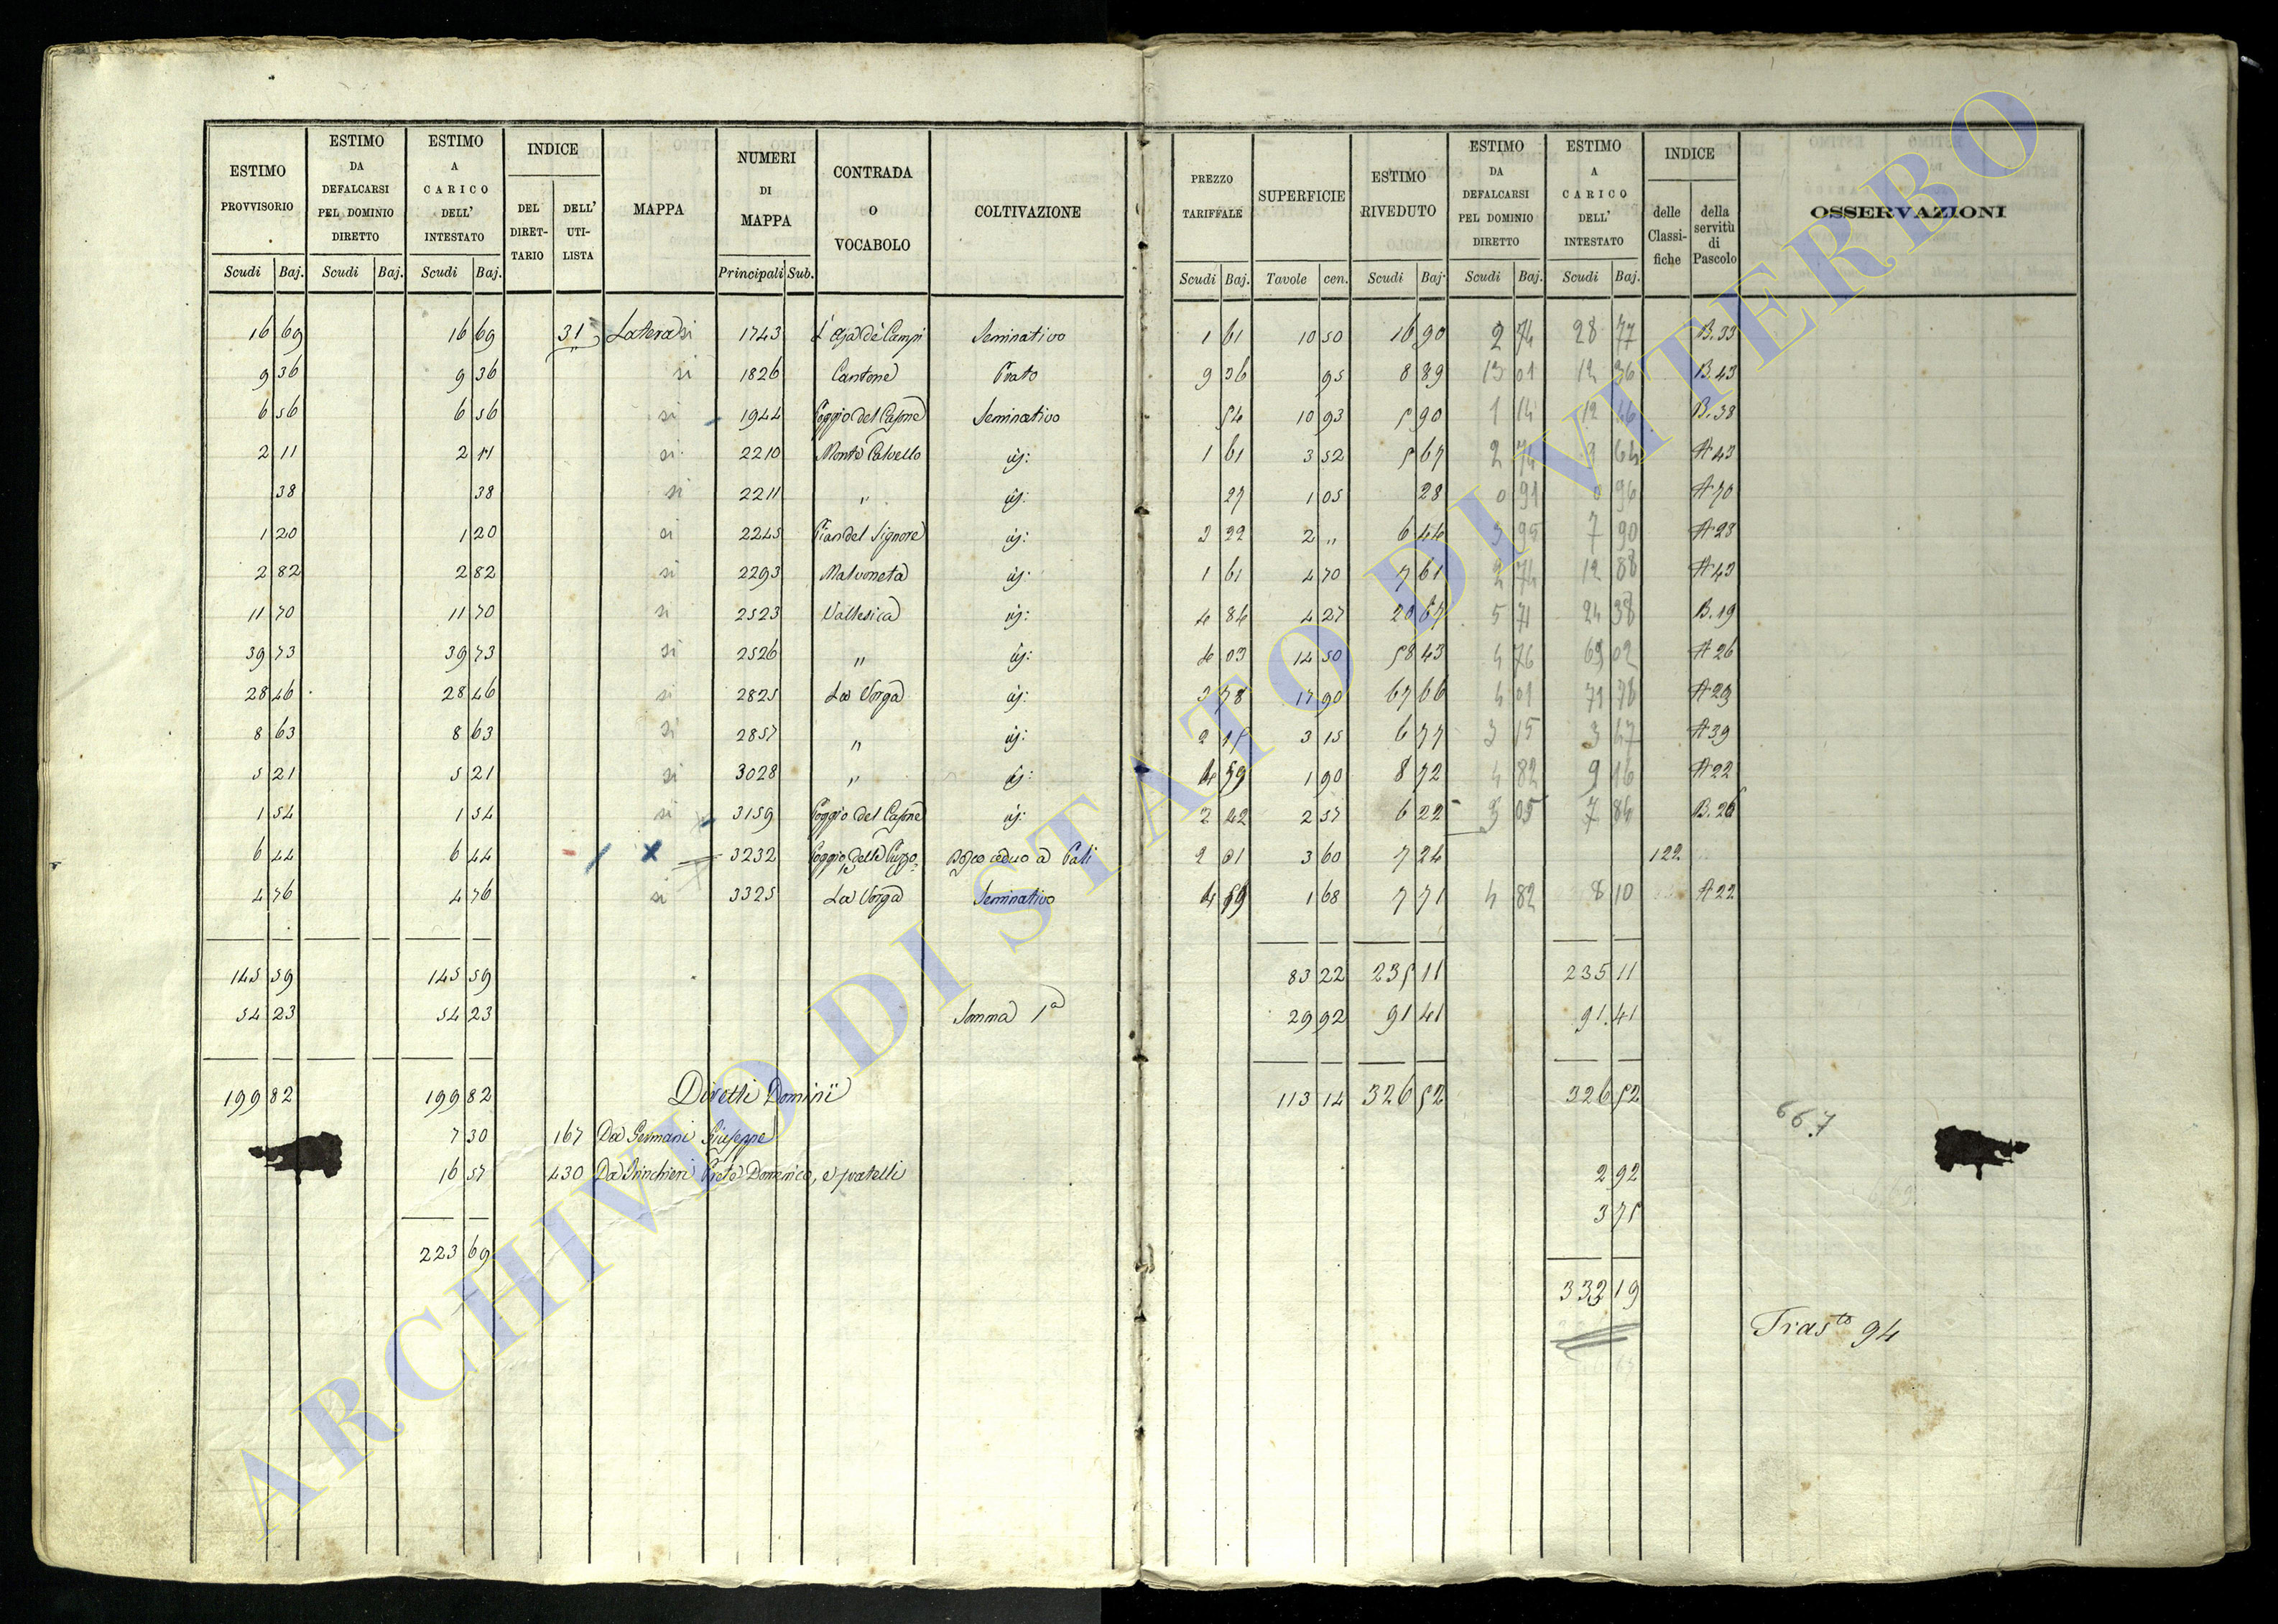 ESTIMO PROVVISORIO | ESTIMO DA DEFALCARSI PEL DOMINIO DIRETTO | ESTIMO A CARICO DELL' INTESTATO | INDICE DEL DIRET-TARIO | DELL' UTI-LISTA | MAPPA | NUMERI DI MAPPA | CONTRADA O VOCABOLO | COLTIVAZIONE | PREZZO TARIFFALE | SUPERFICIE | ESTIMO RIVEDUTO | ESTIMO DA DEFALCARSI PEL DOMINIO DIRETTO | ESTIMO A CARICO DELL' INTESTATO | INDICE delle Classi-fiche | della servitù di Pascolo | OSSERVAZIONI
Scudi Baj. | Scudi Baj. | Scudi Baj. | Principali Sub. | Scudi Baj. | Tavole cen. | Scudi Baj. | Scudi Baj. | Scudi Baj.
16 69 | 16 69 | 31 | Latera si | 1743 | L'Aja de' Campi | Seminativo | 1 61 | 10 50 | 16 90 | 2 74 | 28 77 | B. 33
9 36 | 9 36 | si | 1826 | Cantone | Prato | 9 36 | 95 | 8 89 | 13 01 | 12 36 | B. 43
6 56 | 6 56 | si | 1944 | Poggio del Casone | Seminativo | 54 | 10 93 | 5 90 | 1 14 | 12 46 | B. 38
2 11 | 2 11 | si | 2210 | Monte Calvello | id: | 1 61 | 3 52 | 5 67 | 2 74 | 9 64 | A 43
38 | 38 | si | 2211 | " | id: | 27 | 1 05 | 28 | 0 91 | 0 96 | A 70
1 20 | 1 20 | si | 2245 | Pian del Signore | id: | 3 22 | 2 " | 6 44 | 3 95 | 7 90 | A 23
2 82 | 2 82 | si | 2293 | Malvoneta | id: | 1 61 | 4 70 | 7 61 | 2 74 | 12 88 | A 43
11 70 | 11 70 | si | 2523 | Vallesica | id: | 4 84 | 4 27 | 20 67 | 5 71 | 24 38 | B. 19
39 73 | 39 73 | si | 2526 | " | id: | 4 03 | 14 50 | 58 43 | 4 76 | 69 02 | A 26
28 46 | 28 46 | si | 2825 | La Vorga | id: | 3 78 | 17 90 | 67 66 | 4 01 | 71 78 | A 29
8 63 | 8 63 | si | 2857 | " | id: | 2 15 | 3 15 | 6 77 | 3 15 | A 39
5 21 | 5 21 | si | 3028 | " | id: | 4 59 | 1 90 | 8 72 | 4 82 | 9 16 | A 22
1 54 | 1 54 | si | 3159 | Poggio del Casone | id: | 2 42 | 2 57 | 6 22 | 3 05 | 7 84 | B. 26
6 44 | 6 44 | x | 3232 | Poggio della | Bosco ceduo a Pali | 2 01 | 3 60 | 7 24 | 122
4 76 | 4 76 | si | 3325 | La Vorga | Seminativo | 4 59 | 1 68 | 7 71 | 4 82 | 8 10 | A 22
145 59 | 145 59 | 83 22 | 235 11 | 235 11
54 23 | 54 23 | Somma 1a | 29 92 | 91 41 | 91.41
199 82 | 199 82 | Diretti Dominii | 113 14 | 326 52 | 326 52
667
7 30 | 167 | Da Germani Giuseppe
16 57 | 430 | Da Domenico, e fratelli | 2 92
3 75
223 69
333 19
Trasto 94
ARCHIVIO DI STATO DI VITERBO